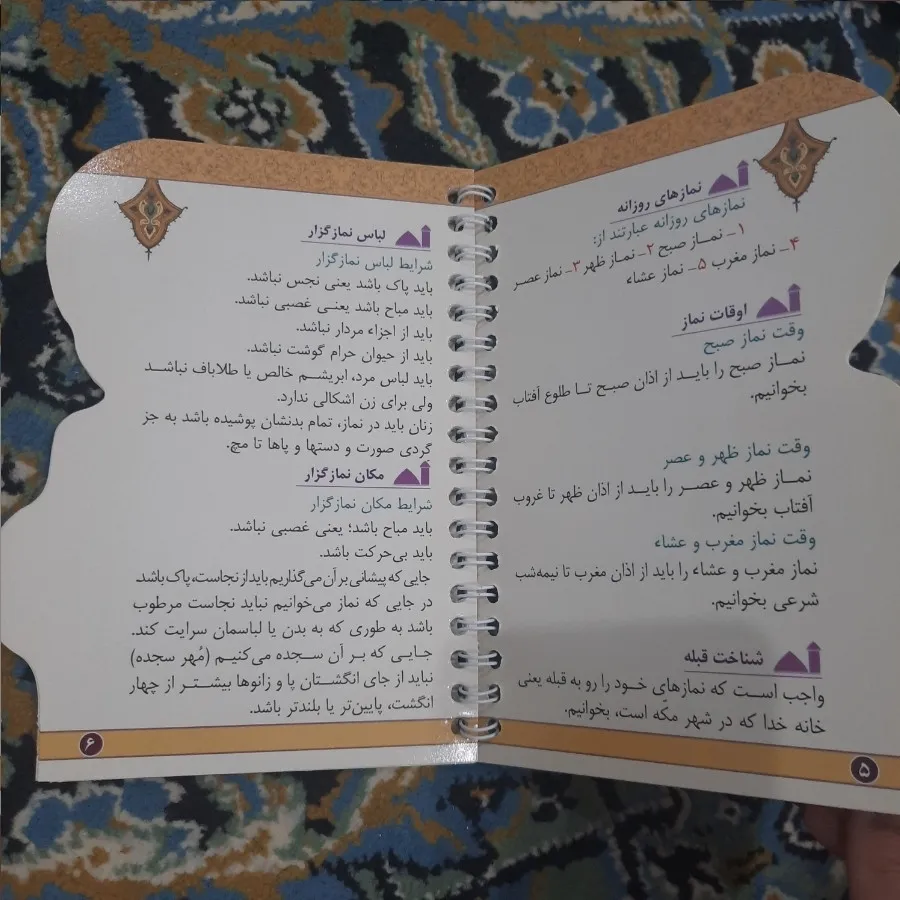 نمازهای روزانه
نمازهای روزانه عبارتند از:
۱ـ نمـاز صبح ۲ـ نمـاز ظهر ۳ـ نماز عصر
۴ـ نماز مغرب ۵ـ نماز عشاء
اوقات نماز
وقت نماز صبح
نمـاز صبح را بایـد از اذان صبح تـا طلوع آفتاب
بخوانیم.
وقت نماز ظهر و عصر
نمـاز ظهر و عصـر را بایـد از اذان ظهر تا غروب
آفتاب بخوانیم.
وقت نماز مغرب و عشاء
نماز مغرب و عشاء را باید از اذان مغرب تا نیمه‌شب
شرعی بخوانیم.
شناخت قبله
واجب اسـت که نمازهای خـود را رو به قبله یعنی
خانه خدا که در شهر مکّه است، بخوانیم.
۵
لباس نمازگزار
شرایط لباس نمازگزار
باید پاک باشد یعنی نجس نباشد.
باید مباح باشد یعنـی غصبی نباشد.
باید از اجزاء مردار نباشد.
باید از حیوان حرام گوشت نباشد.
باید لباس مرد، ابریشـم خالص یا طلاباف نباشـد
ولی برای زن اشکالی ندارد.
زنان باید در نماز، تمام بدنشان پوشیده باشد به جز
گردی صورت و دستها و پاها تا مچ.
مکان نمازگزار
شرایط مکان نمازگزار
باید مباح باشد؛ یعنی غصبی نباشد.
باید بی‌حرکت باشد.
جایی که پیشانی بر آن می‌گذاریم باید از نجاست، پاک باشد.
در جایی که نماز می‌خوانیم نباید نجاست مرطوب
باشد به طوری که به بدن یا لباسمان سرایت کند.
جـایـی که بـر آن سـجده می‌کنیـم (مُهر سجده)
نباید از جای انگشـتان پا و زانوها بیشتـر از چهار
انگشت، پایین‌تر یا بلندتر باشد.
۶